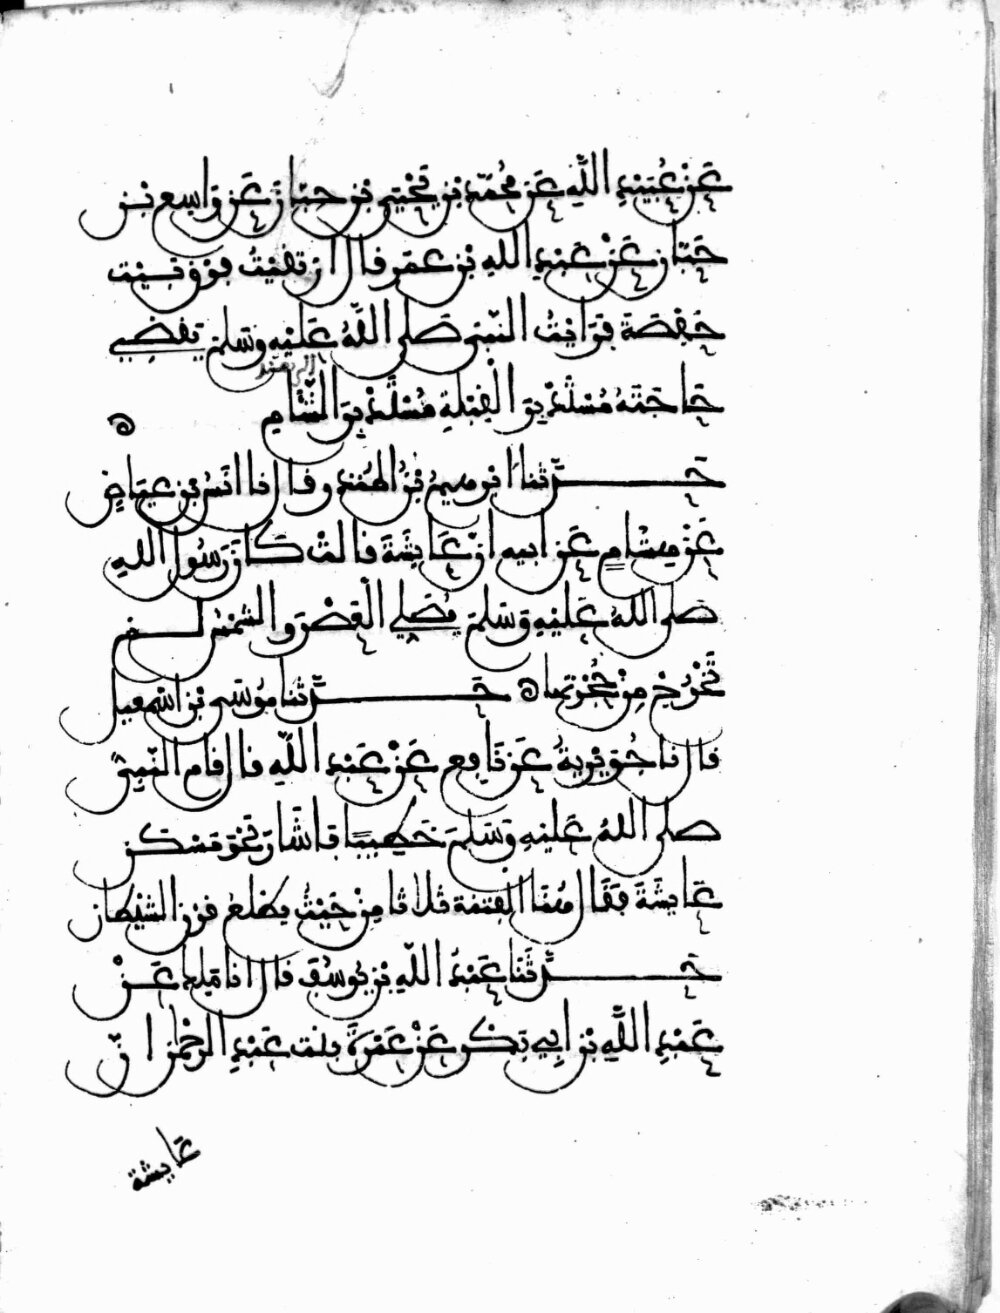 عَنْ عُبَيْدِ اللَّهِ عَنْ مُحَمَّدِ بْنِ يَحْيَى بْنِ حَبَّانَ عَنْ وَاسِعِ بْنِ
حَبَّانَ عَنْ عَبْدِ اللهِ بْنِ عُمَرَ قَالَ ارْتَقَيْتُ فَوْقَ بَيْتِ
حَفْصَةَ فَرَايْتُ النَّبِيَّ صَلَّى اللَّهُ عَلَيْهِ وَسَلَّمَ يَقْضِي
حَاجَتَهُ مُسْتَدْبِرَ الْقِبْلَةِ مُسْتَقْبِلَ الشَّامِ
حَدَّثَنَا ابْرَهِيمُ بْنُ الْمُنْذِرِ قَالَ نا انَسُ بْنُ عِيَاضٍ
عَنْ هِشَامٍ عَنْ ابِيهِ انَّ عَايِشَةَ قَالَتْ كَانَ رَسُولُ اللهِ
صَلَّى اللَّهُ عَلَيْهِ وَسَلَّمَ يُصَلِّي الْعَصْرَ وَالشَّمْسُ لَمْ
تَخْرُجْ مِنْ حُجْرَتِهَا ه حَدَّثَنَا مُوسَى بْنُ اسْمَعِيلَ
قَالَ نا جُوَيْرِيَةُ عَنْ نَافِعٍ عَنْ عَبْدِ اللَّهِ قَالَ قَامَ النَّبِيُّ
صَلَّى اللهُ عَلَيْهِ وَسَلَّمَ خَطِيبًا فَاشَارَ نَحْوَ مَسْكَنِ
عَايِشَةَ فَقَالَ هُنَا الْفِتْنَةُ ثَلَاثًا مِنْ حَيْثُ يَطْلُعُ قَرْنُ الشَّيْطَانِ
حَدَّثَنَا عَبْدُ اللَّهِ بْنُ يُوسُفَ قَالَ انا مَلِكٌ عَنْ
عَبْدِ اللَّهِ بْنِ ابِي بَكْرٍ عَنْ عَمْرَةَ بِنْتِ عَبْدِ الرَّحْمَنِ انَّ
عَايشة